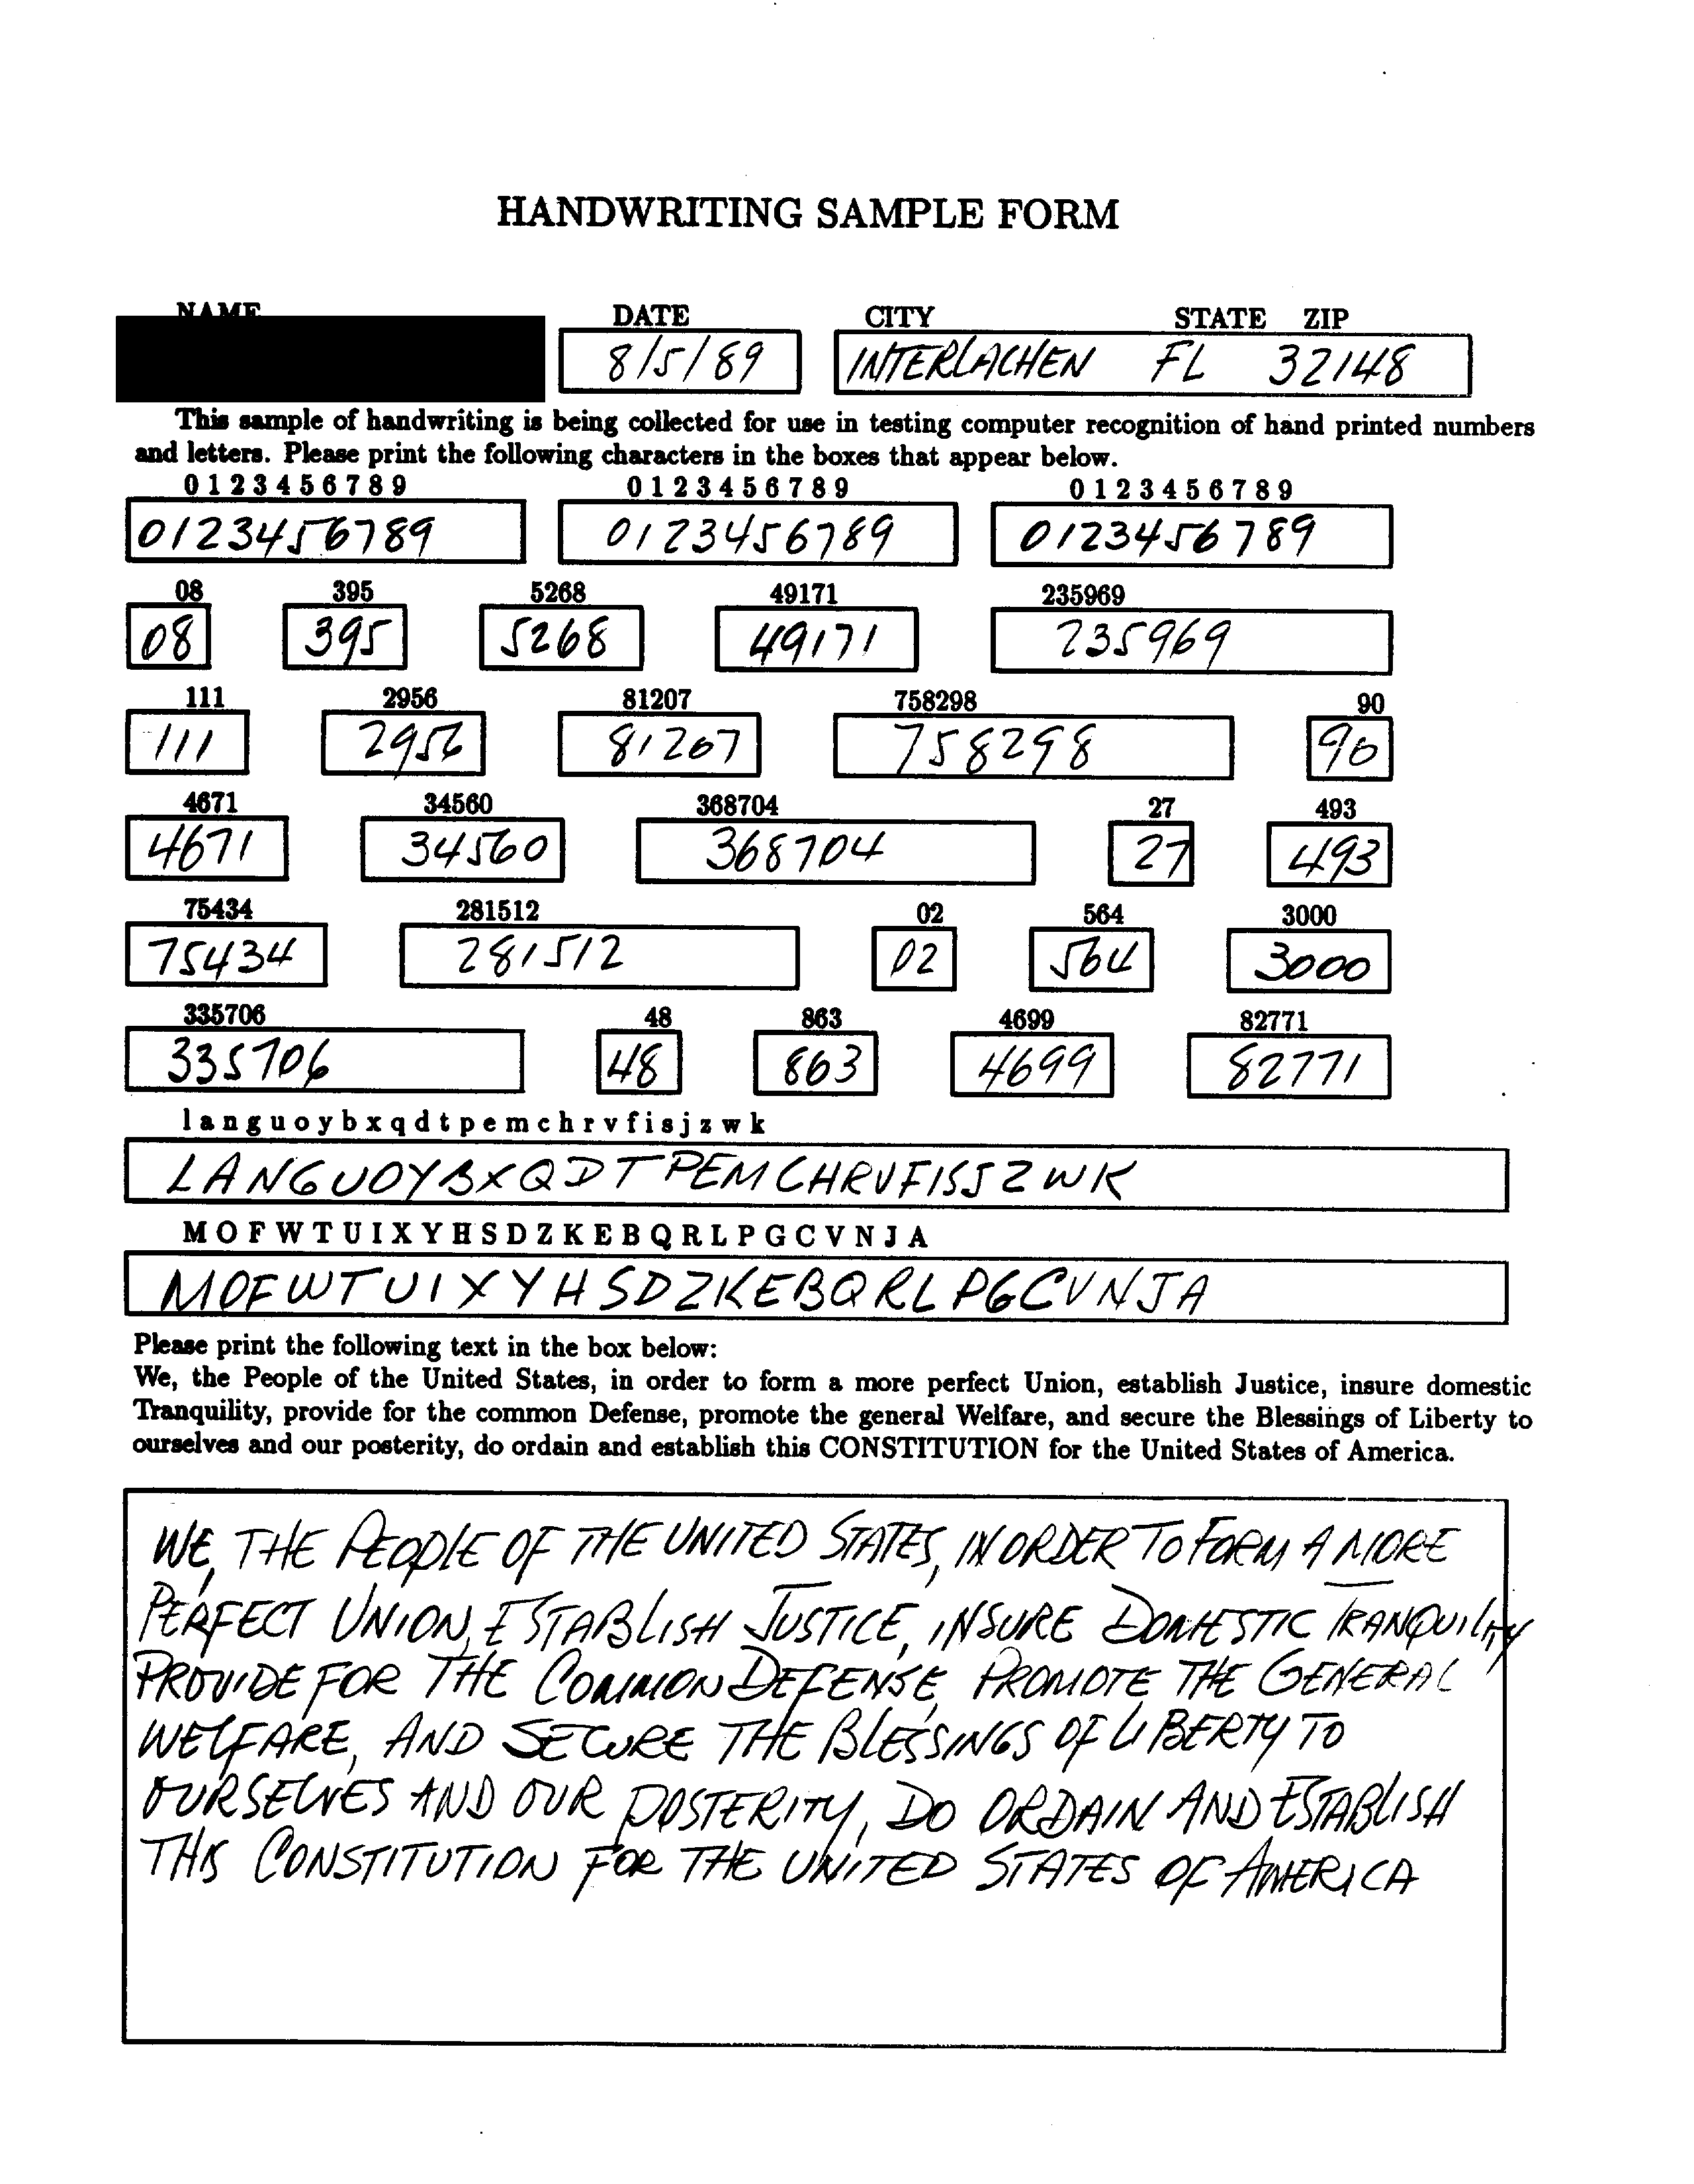 HANDWRITING SAMPLE FORM
NAME DATE CITY STATE ZIP
8/5/89 INTERLACHEN FL 32148
This sample of handwriting is being collected for use in testing computer recognition of hand printed numbers
and letters. Please print the following characters in the boxes that appear below.
0 1 2 3 4 5 6 7 8 9 0 1 2 3 4 5 6 7 8 9 0 1 2 3 4 5 6 7 8 9
0123456789 0123456789 0123456789
08 395 5268 49171 235969
08 395 5268 49171 235969
111 2956 81207 758298 90
111 2956 81207 758298 90
4671 34560 368704 27 493
4671 34560 368704 27 493
75434 281512 02 564 3000
75434 281512 02 564 3000
335706 48 863 4699 82771
335706 48 863 4699 82771
l a n g u o y b x q d t p e m c h r v f i s j z w k
LANGUOYBXQDTPEMCHRVFISJZWK
M O F W T U I X Y H S D Z K E B Q R L P G C V N J A
MOFWTUIXYHSDZKEBQRLPGCVNJA
Please print the following text in the box below:
We, the People of the United States, in order to form a more perfect Union, establish Justice, insure domestic
Tranquility, provide for the common Defense, promote the general Welfare, and secure the Blessings of Liberty to
ourselves and our posterity, do ordain and establish this CONSTITUTION for the United States of America.
WE, THE PEOPLE OF THE UNITED STATES, IN ORDER TO FORM A MORE
PERFECT UNION, ESTABLISH JUSTICE, INSURE DOMESTIC TRANQUILITY
PROVIDE FOR THE COMMON DEFENSE, PROMOTE THE GENERAL
WELFARE, AND SECURE THE BLESSINGS OF LIBERTY TO
OURSELVES AND OUR POSTERITY, DO ORDAIN AND ESTABLISH
THIS CONSTITUTION FOR THE UNITED STATES OF AMERICA